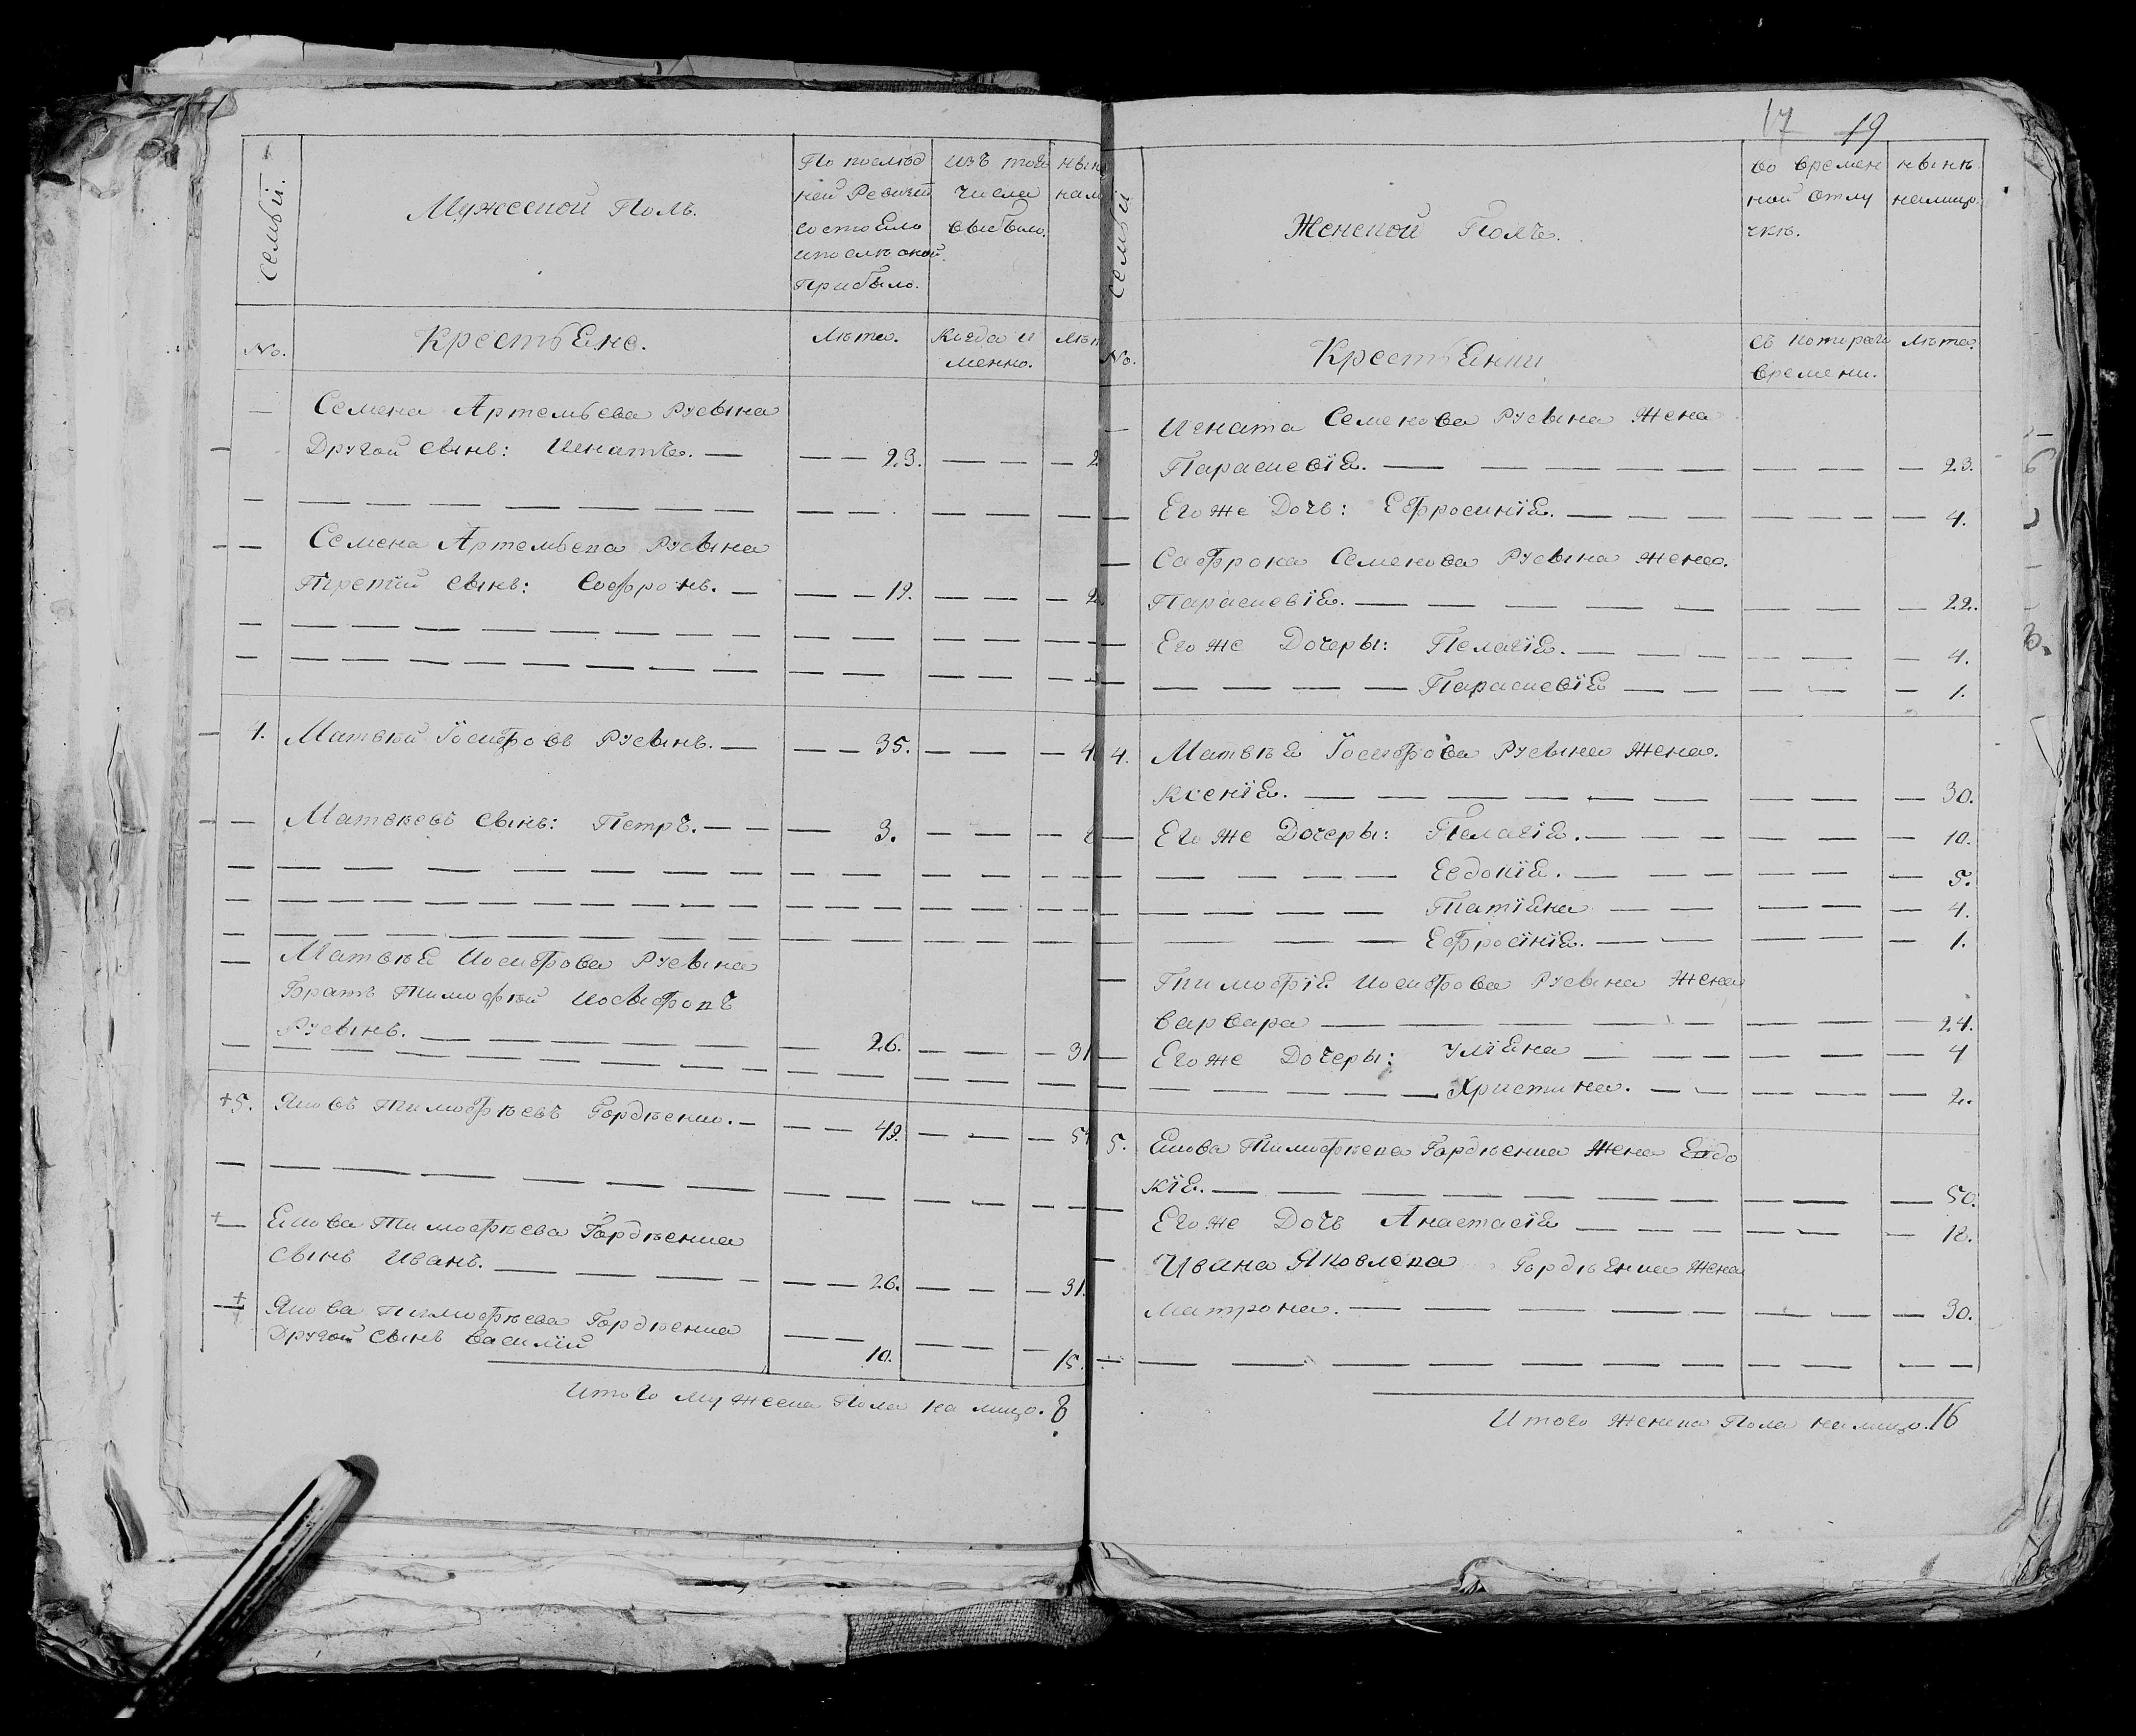 семьи.
Мужеской Полъ.
По послѣд
ней Ревизіи
состояло
и послѣ оной
прибыло.
изъ того
числа
выбыло.
нын
нали
No.
Крестьяне.
Лѣта.
Когда и
менно.
Лѣт
Семена Артемьева Русына
Другой сынъ: Игнатъ. — — — 23. — — — 2
Семена Артемьева Русына
Третій сынъ: Софронъ. — — — 19. — — — 2
4. Матвѣй Іосифовъ Русынъ. — — — 35. — — — 4
Матвѣевъ сынъ: Петръ. — — — 3. — — —
Матвѣя Иосифова Русына
Братъ Тимофѣй Иосифовъ
Русынъ. — — — 26. — — — 31
+5. Яковъ Тимофѣевъ Гордѣенко. — — — 49. — — — 5
+ Якова Тимофѣева Гордѣенка
сынъ Иванъ. — — — 26. — — — 31.
+ Якова Тимофѣева Гордѣенка
Другой сынъ Василій — — 10. — — — 15.
Итого мужеска Пола на лицо. 8
17 19
семьи
Женской Полъ.
во времен
ной отлу
чкѣ.
нынѣ
налицо.
No.
Крестьянки
съ котораго
времени.
Лѣта.
Игната Семенова Русына Жена
Параскевія. — — — 23.
Его же Дочь: Ефросинія. — — — 4.
Софрона Семенова Русына жена.
Параскевія. — — — 22.
Его же Дочеры: Пелагія. — — — 4.
— — — — Параскевія — — — 1.
4. Матвѣя Іосифова Русына Жена.
Ксенія. — — — 30.
Его же Дочеры: Пелагія. — — — 10.
— — — — Евдокія. — — — 5.
— — — — Татіяна — — — 4.
— — — — Ефросінія. — — — 1.
Тимофія Иосифова Русына Жена
Варвара — — — 24.
Его же Дочеры: Уліяна — — — 4
— — — — Христина. — — — 2.
5. Якова Тимофѣева Гордѣенка Жена Евдо
кія. — — — 50.
Его же Дочь Анастасія — — — 18.
Ивана Яковлева Гордѣенка Жена
Матрона. — — — 30.
Итого женска Пола налицо. 16